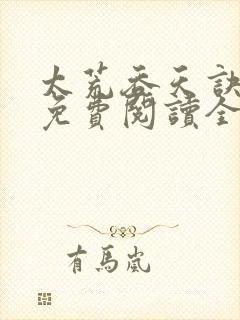 大荒吞天訣
免費閱讀全
有馬嵐